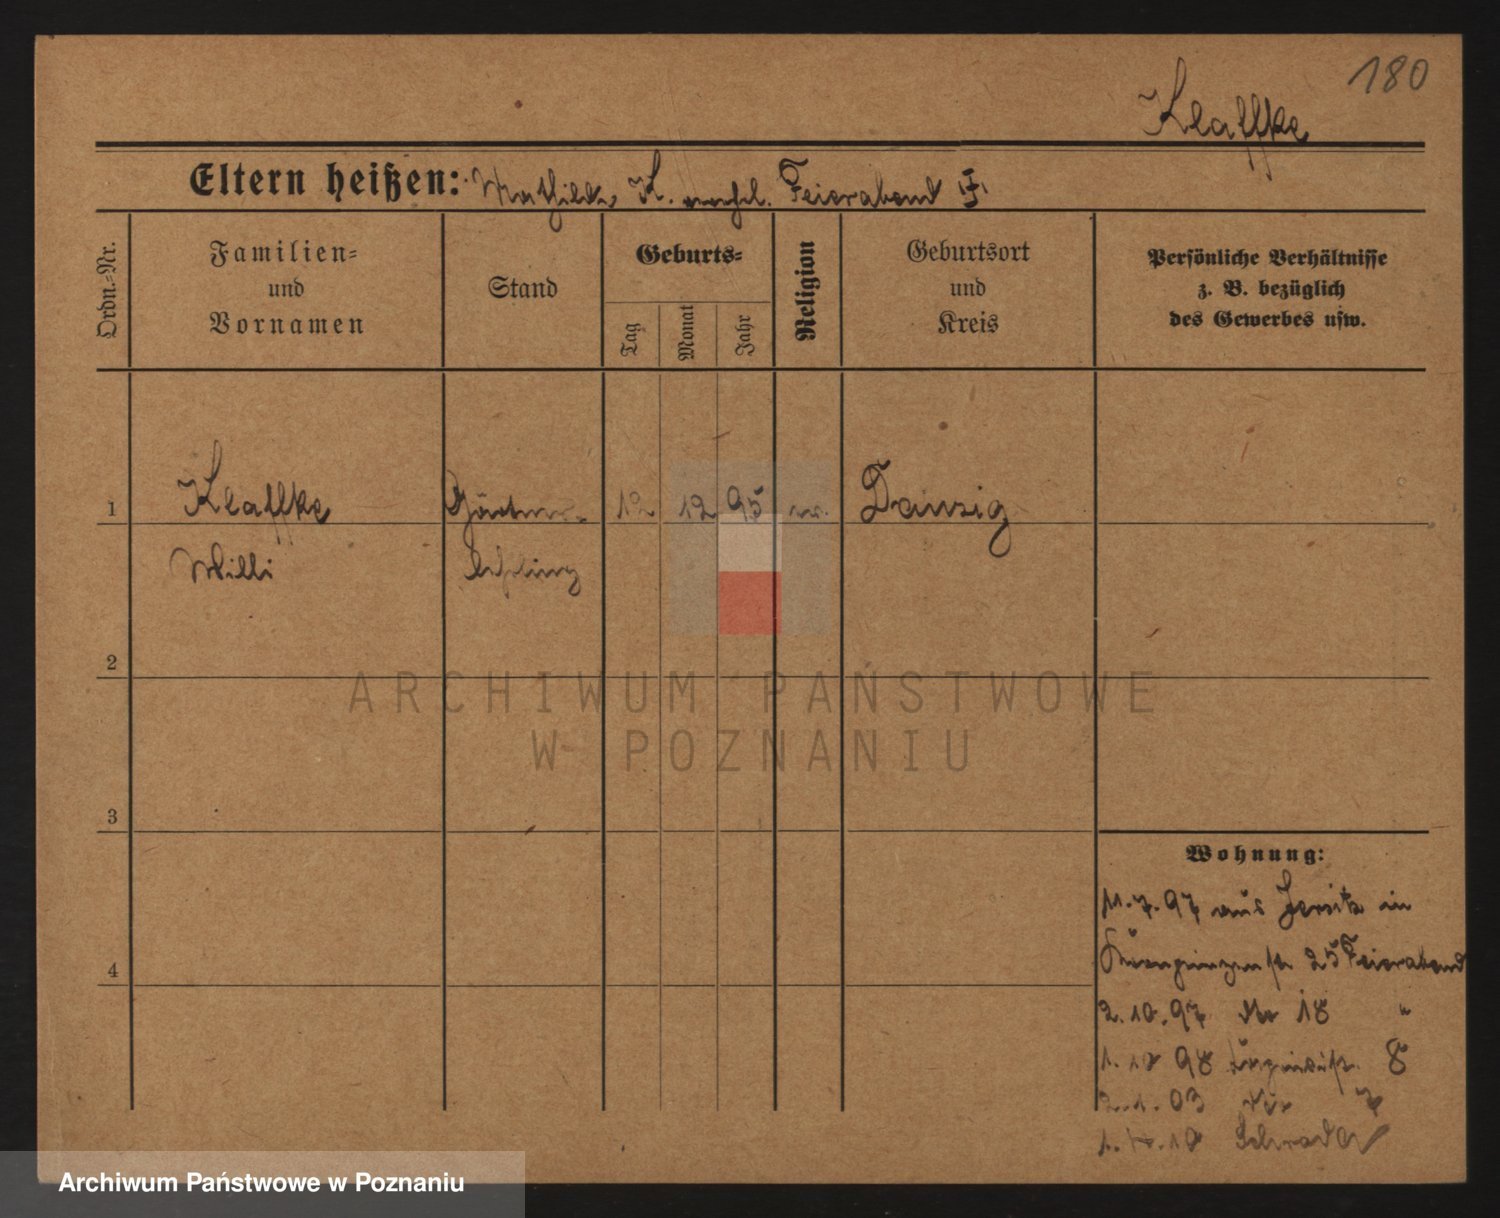 180
Klaffke
Eltern heißen: Mathilde K. verehl. Feierabend
Ordn.-Nr.
Familien-
und
Vornamen
Stand
Geburts-
Tag
Monat
Jahr
Religion
Geburtsort
und
Kreis
Persönliche Verhältnisse
z. B. bezüglich
des Gewerbes usw.
1
Klaffke Gärtner- 12 12 95 Danzig
Willi Lehrling
2
3
4
Wohnung:
11.7.97 aus Jersitz in
Kronprinzenstr 25 Feierabend
2.10.97 18 "
1.10 98 8
2.1.03 7
ARCHIWUM PAŃSTWOWE
W POZNANIU
Archiwum Państwowe w Poznaniu